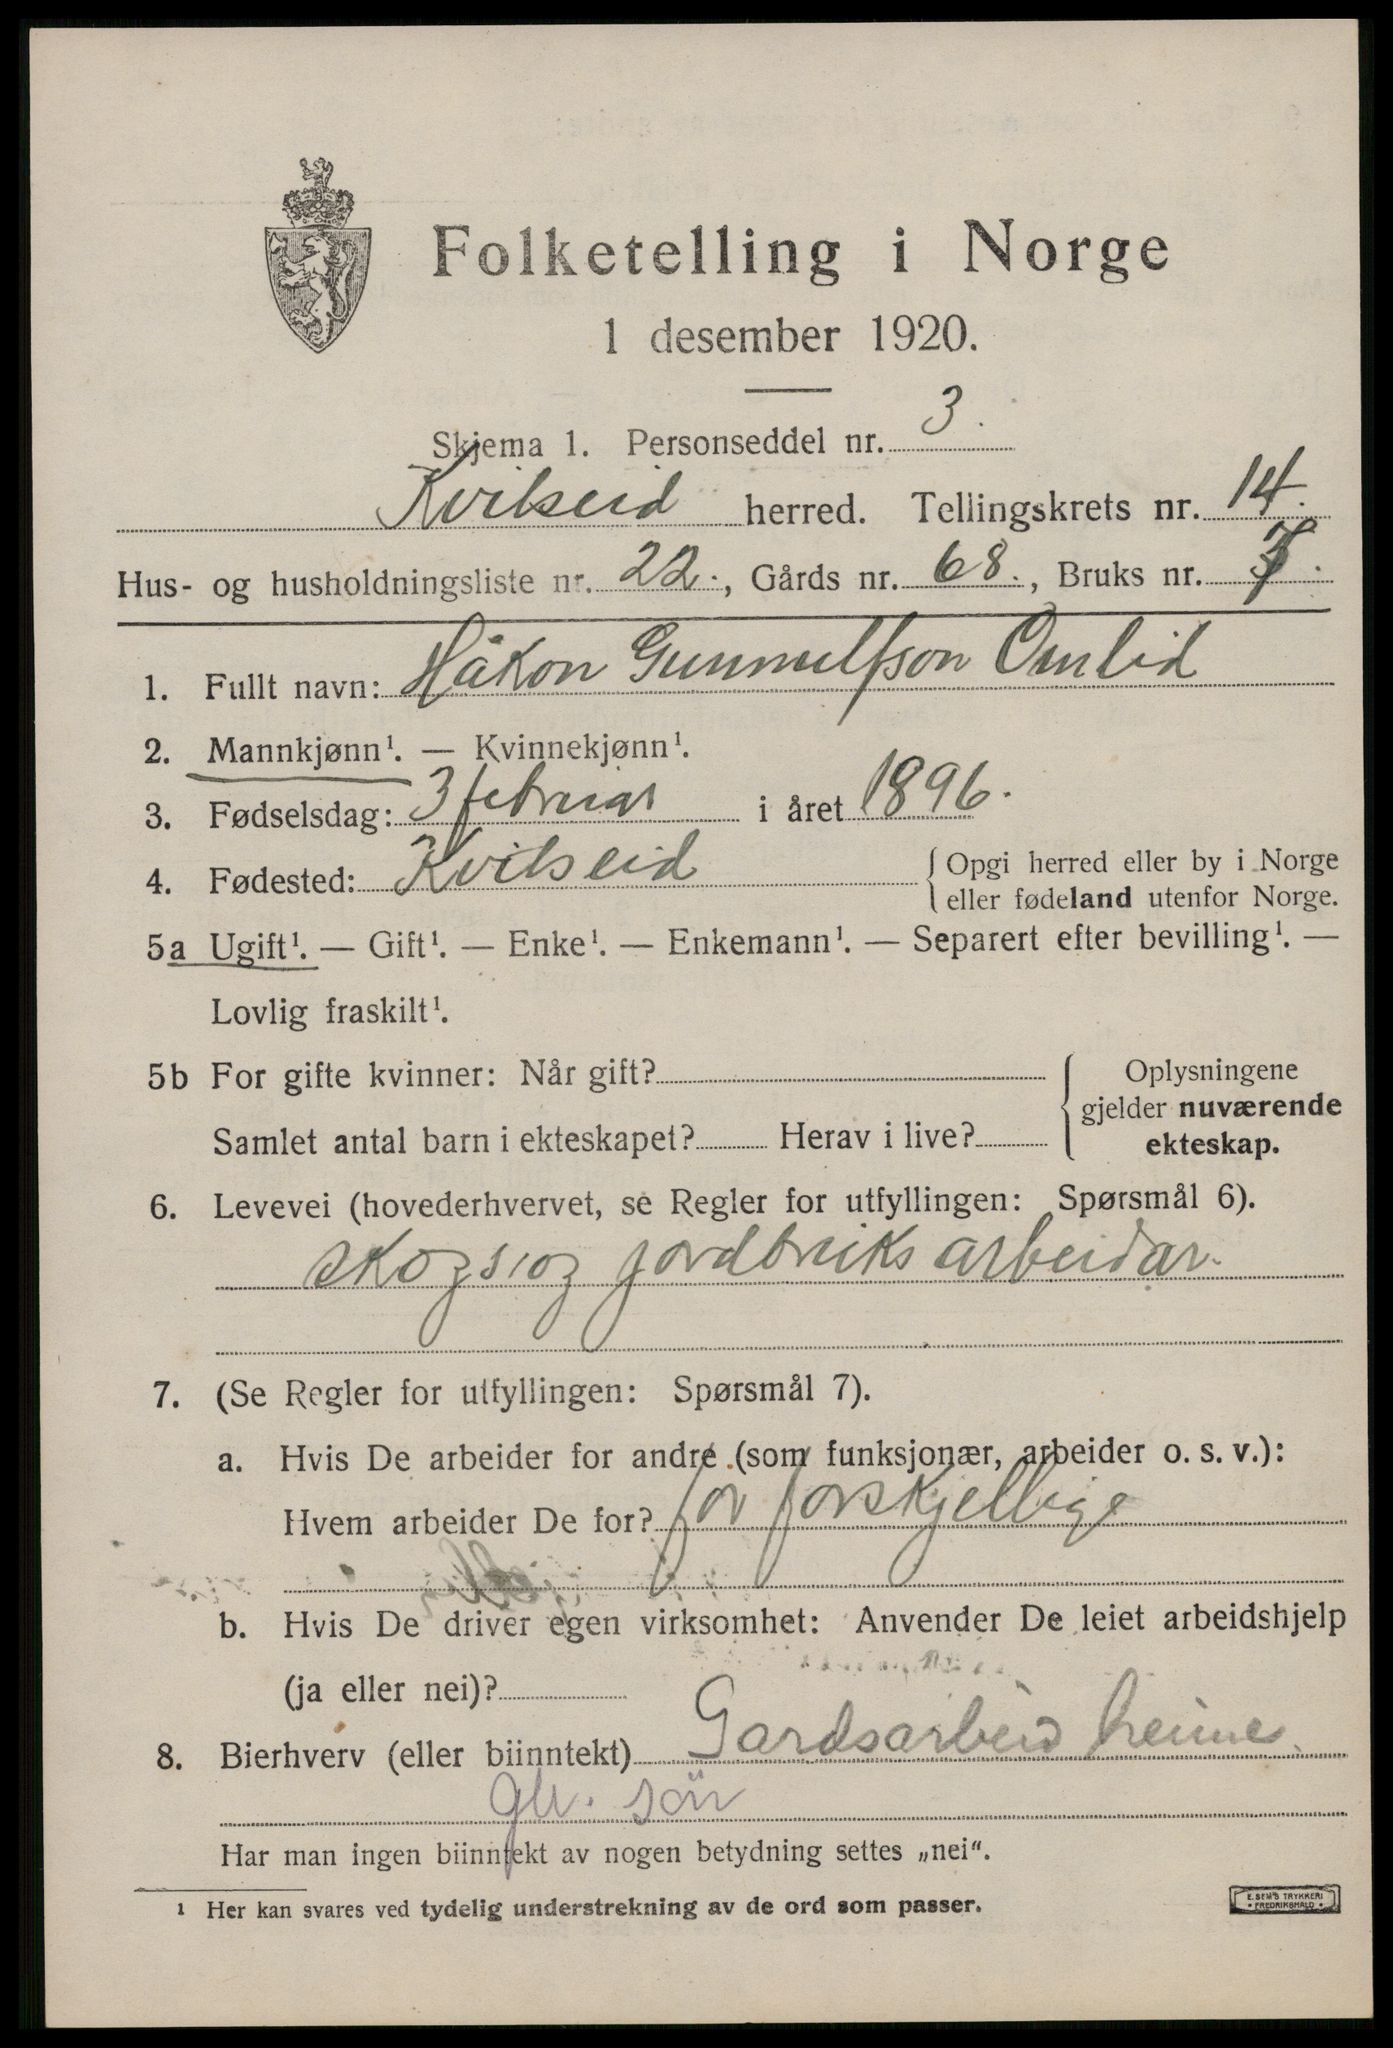 Folketelling i Norge
1 desember 1920.
Skjema 1. Personseddel nr. 3.
Kvitseid herred. Tellingskrets nr. 14.
Hus- og husholdningsliste nr. 22., Gårds nr. 68., Bruks nr.
1. Fullt navn: Håkon Gunnulfson Omlid
2. Mannkjønn¹. — Kvinnekjønn¹.
3. Fødselsdag: 3 februar i året 1896.
4. Fødested: Kvitseid { Opgi herred eller by i Norge
eller fødeland utenfor Norge.
5a Ugift¹. — Gift¹. — Enke¹. — Enkemann¹. — Separert efter bevilling¹. —
Lovlig fraskilt¹.
5b For gifte kvinner: Når gift? { Oplysningene
gjelder nuværende
Samlet antal barn i ekteskapet? Herav i live? ekteskap.
6. Levevei (hovederhvervet, se Regler for utfyllingen: Spørsmål 6).
skogs og jordbruks arbeidar.
7. (Se Regler for utfyllingen: Spørsmål 7).
a. Hvis De arbeider for andre (som funksjonær, arbeider o. s. v.):
Hvem arbeider De for? for forskjellige
b. Hvis De driver egen virksomhet: Anvender De leiet arbeidshjelp
(ja eller nei)?
8. Bierhverv (eller biinntekt) Gardsarbeid heime.
sön
Har man ingen biinntekt av nogen betydning settes „nei“.
¹ Her kan svares ved tydelig understrekning av de ord som passer.
E. SEM'S TRYKKERI
• FREDRIKSHALD •